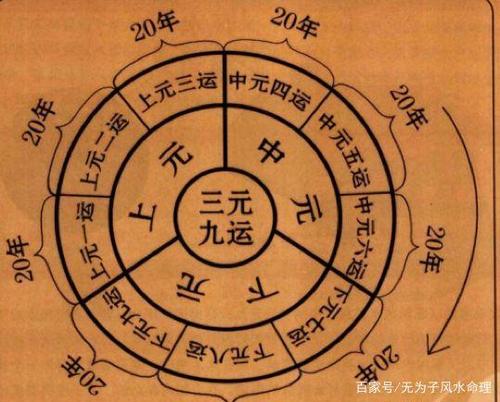 20年
20年
20年
20年
20年
20年
20年
20年
上元一运
上元二运
上元三运
中元四运
中元五运
中元六运
下元七运
下元八运
下元九运
上元
中元
下元
三元
九运
百家号/无为子风水命理